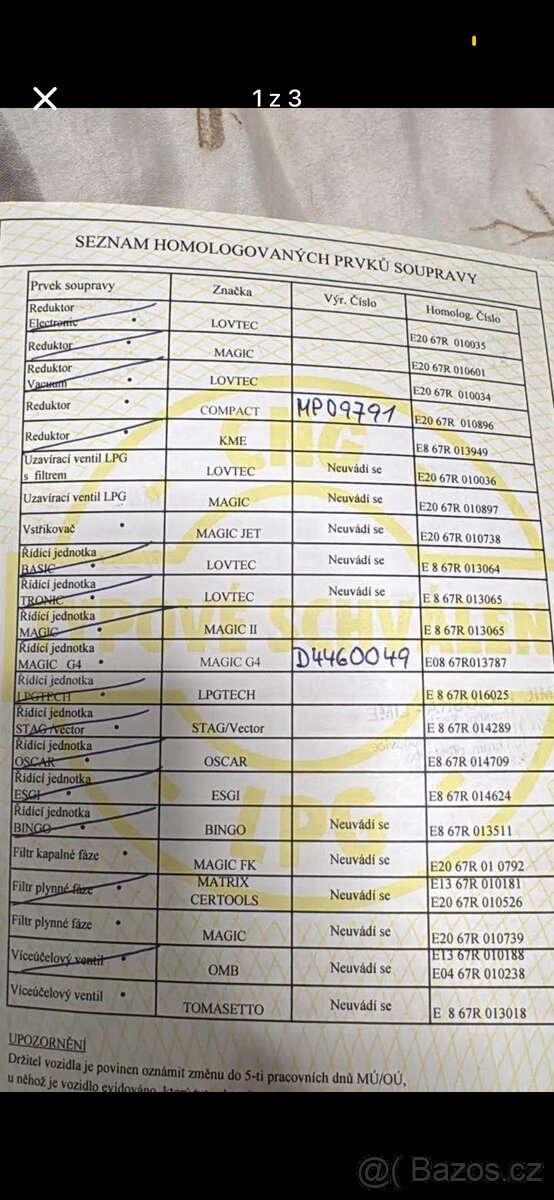 1 z 3
SEZNAM HOMOLOGOVANÝCH PRVKŮ SOUPRAVY
Prvek soupravy Značka Výr. Číslo Homolog. Číslo
Reduktor
Electronic LOVTEC E20 67R 010035
Reduktor MAGIC E20 67R 010601
Reduktor
Vacuum LOVTEC E20 67R 010034
Reduktor COMPACT MP09791 E20 67R 010896
Reduktor KME E8 67R 013949
Uzavírací ventil LPG
s filtrem LOVTEC Neuvádí se E20 67R 010036
Uzavírací ventil LPG MAGIC Neuvádí se E20 67R 010897
Vstřikovač MAGIC JET Neuvádí se E20 67R 010738
Řídící jednotka
BASIC LOVTEC Neuvádí se E 8 67R 013064
Řídící jednotka
TRONIC LOVTEC Neuvádí se E 8 67R 013065
Řídící jednotka
MAGIC MAGIC II E 8 67R 013065
Řídící jednotka
MAGIC G4 MAGIC G4 D4460049 E08 67R013787
Řídící jednotka
LPGTECH LPGTECH E 8 67R 016025
Řídící jednotka
STAG/Vector STAG/Vector E 8 67R 014289
Řídící jednotka
OSCAR OSCAR E8 67R 014709
Řídící jednotka
ESGI ESGI E8 67R 014624
Řídící jednotka
BINGO BINGO Neuvádí se E8 67R 013511
Filtr kapalné fáze MAGIC FK Neuvádí se E20 67R 01 0792
Filtr plynné fáze MATRIX Neuvádí se E13 67R 010181
CERTOOLS E20 67R 010526
Filtr plynné fáze MAGIC Neuvádí se E20 67R 010739
Víceúčelový ventil OMB Neuvádí se E13 67R 010188
E04 67R 010238
Víceúčelový ventil TOMASETTO Neuvádí se E 8 67R 013018
CNG
TYPOVÉ SCHVÁLEN
LPG
UPOZORNĚNÍ
Držitel vozidla je povinen oznámit změnu do 5-ti pracovních dnů MÚ/OÚ,
u něhož je vozidlo evidováno,
@( Bazos.cz